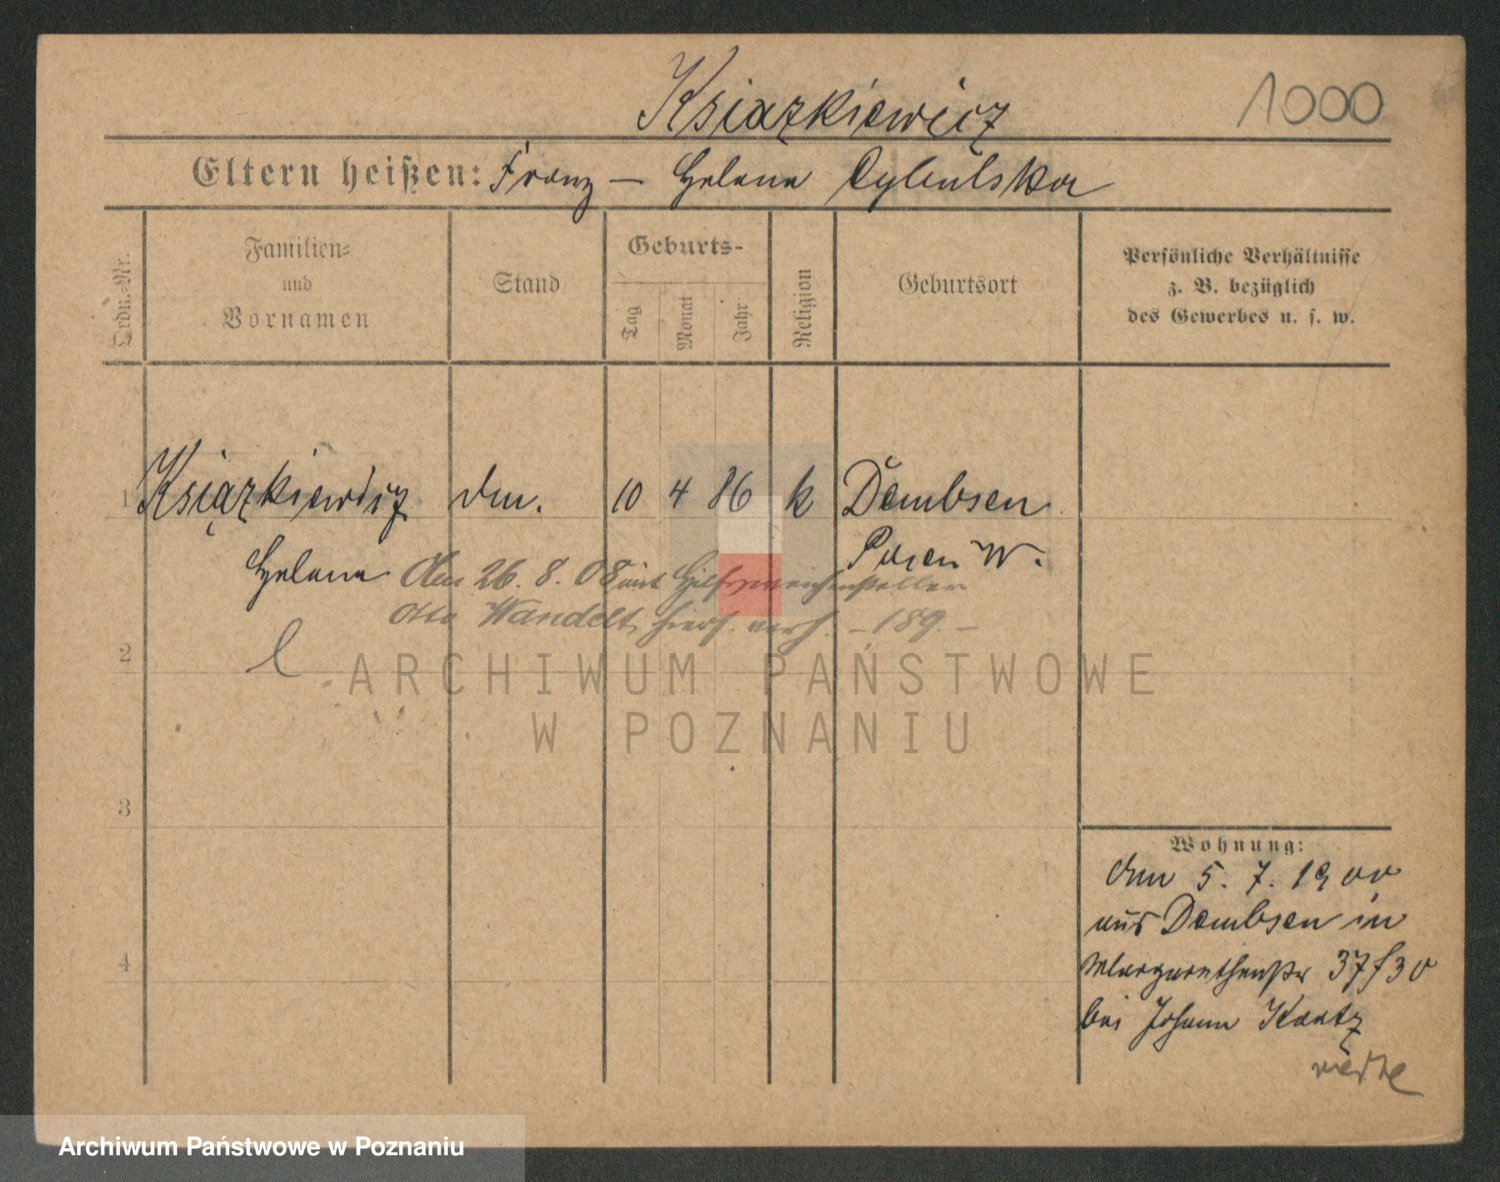 Ksiazkiewicz
1000
Eltern heißen: Franz — Helene Cybulska
Ordn.-Nr.
Familien=
und
Vornamen
Stand
Geburts-
Tag
Monat
Jahr
Religion
Geburtsort
Persönliche Verhältnisse
z. B. bezüglich
des Gewerbes u. s. w.
1 Książkiewicz 10 4 86 k Dembsen
Posen W.
Helene
Am 26. 8. 08 mit Hilfsweichensteller
Otto Wandelt, hier verh. – 189. –
2
3
4
ARCHIWUM PAŃSTWOWE
W POZNANIU
Wohnung:
5. 7. 1900
aus Dembsen in
Margarethenstr 37/30
bei Johann
Archiwum Państwowe w Poznaniu